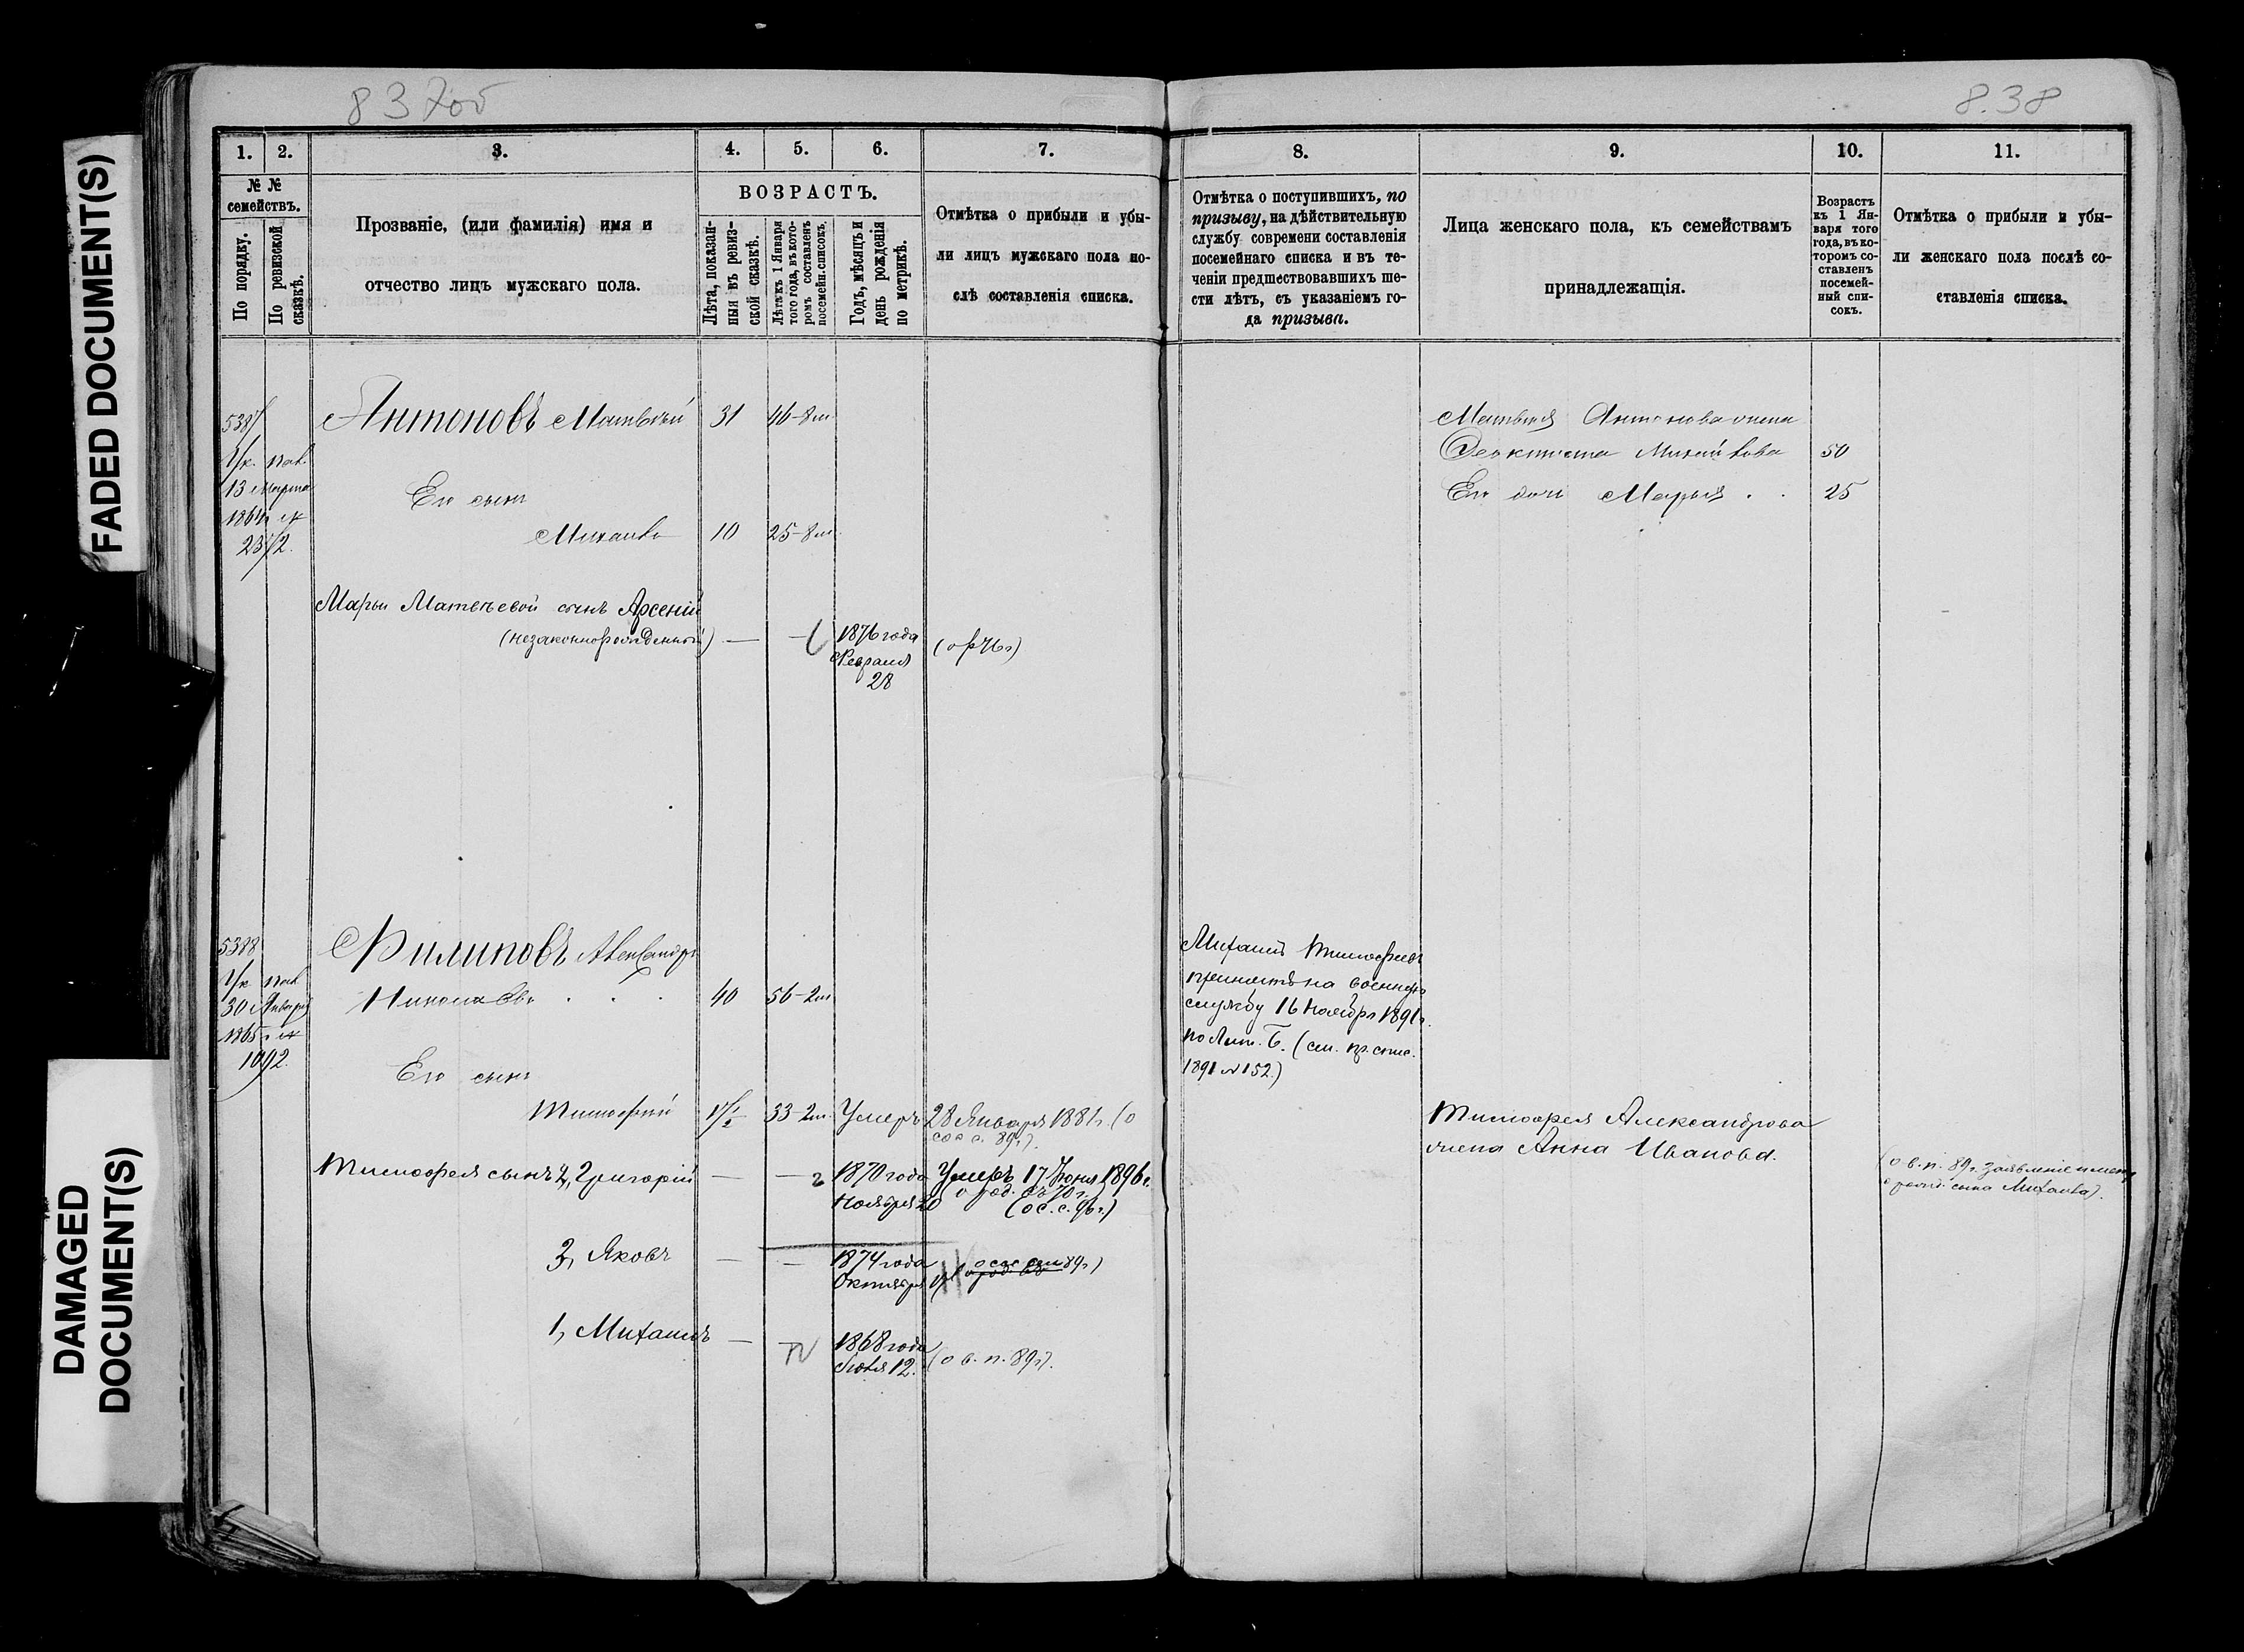 837об
8.38
FADED DOCUMENT(S)
DAMAGED
DOCUMENT(S)
1.
2.
3.
4.
5.
6.
7.
8.
9.
10.
11.
№ №
семействъ.
По порядку.
По ревизской
сказкѣ.
Прозваніе, (или фамилія) имя и
отчество лицъ мужскаго пола.
ВОЗРАСТЪ.
Лѣта, показан-
ныя въ ревиз-
ской сказкѣ.
Лѣта къ 1 Января
того года, въ кото-
ромъ составленъ
посемейн. списокъ.
Годъ, мѣсяцъ и
день рожденія
по метрикѣ.
Отмѣтка о прибыли и убы-
ли лицъ мужскаго пола по-
слѣ составленія списка.
Отмѣтка о поступившихъ, по
призыву, на дѣйствительную
службу современи составленія
посемейнаго списка и въ те-
ченіи предшествовавшихъ ше-
сти лѣтъ, съ указаніемъ го-
да призыва.
Лица женскаго пола, къ семействамъ
принадлежащія.
Возрастъ
къ 1 Ян-
варя того
года, въ ко-
торомъ со-
ставленъ
посемей-
ный спи-
сокъ.
Отмѣтка о прибыли и убы-
ли женскаго пола послѣ со-
ставленія списка.
5387
13 Марта
1864 г. №
2372.
Антоновъ Матвѣй 31 46-8м
Его сынъ
Михаилъ 10 25-8м
Марьи Матвѣевой сынъ Арсеній
(незаконнорожденный) —
1876 года
Февраля
28
Матвѣя Антонова жена
Феоктиста Михайлова 50
Его дочь Марья . . 25
5388
30 Января
1865 г. №
1092.
Филиповъ Александръ
Николаевъ . . . 40 56-2м
Его сынъ
Тимофей 1 1/2 33-2м. Умеръ 28 Января 1881 г. (о
89 г.).
Тимофея сынъ 2, Григорій — — 1870 года
Ноября 20
Умеръ 17 Іюня 1896 г.
(о с. с. 96 г.)
3, Яковъ — — 1874 года
Октября
89 г)
1, Михаилъ — 1868 года
Іюля 12.
(о в. п. 89 г).
Михаилъ Тимофеевъ
принятъ на военную
службу 16 Ноября 1891 г.
по Лит. Б. (см. пр. спис.
1891 № 152.)
Тимофея Александрова
жена Анна Иванова.
(о в. п. 89 г. заявленіе
о рожд. сына Михаила).